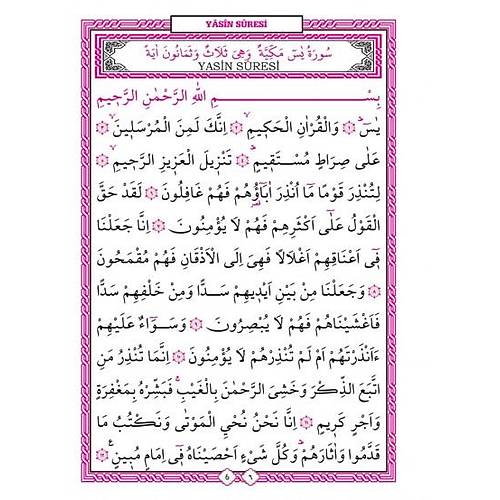 YÂSÎN SÛRESİ
سُورَةُ يٰسٓ مَكِّيَّةٌ وَهِيَ ثَلَاثٌ وَثَمَانُونَ اٰيَةً
YASİN SÛRESİ
بِسْمِ اللهِ الرَّحْمٰنِ الرَّحٖيمِ
يٰسٓ ۞ وَالْقُرْاٰنِ الْحَكٖيمِۙ ۞ اِنَّكَ لَمِنَ الْمُرْسَلٖينَۙ ۞
عَلٰى صِرَاطٍ مُسْتَقٖيمٍؕ ۞ تَنْزٖيلَ الْعَزٖيزِ الرَّحٖيمِۙ ۞
لِتُنْذِرَ قَوْمًا مَٓا اُنْذِرَ اٰبَٓاؤُ۬هُمْ فَهُمْ غَافِلُونَ ۞ لَقَدْ حَقَّ
الْقَوْلُ عَلٰٓى اَكْثَرِهِمْ فَهُمْ لَا يُؤْمِنُونَ ۞ اِنَّا جَعَلْنَا
فٖٓى اَعْنَاقِهِمْ اَغْلَالًا فَهِىَ اِلَى الْاَذْقَانِ فَهُمْ مُقْمَحُونَ
۞ وَجَعَلْنَا مِنْ بَيْنِ اَيْدٖيهِمْ سَدًّا وَمِنْ خَلْفِهِمْ سَدًّا
فَاَغْشَيْنَاهُمْ فَهُمْ لَا يُبْصِرُونَ ۞ وَسَوَٓاءٌ عَلَيْهِمْ
ءَاَنْذَرْتَهُمْ اَمْ لَمْ تُنْذِرْهُمْ لَا يُؤْمِنُونَ ۞ اِنَّمَا تُنْذِرُ مَنِ
اتَّبَعَ الذِّكْرَ وَخَشِىَ الرَّحْمٰنَ بِالْغَيْبِۚ فَبَشِّرْهُ بِمَغْفِرَةٍ
وَاَجْرٍ كَرٖيمٍ ۞ اِنَّا نَحْنُ نُحْيِ الْمَوْتٰى وَنَكْتُبُ مَا
قَدَّمُوا وَاٰثَارَهُمْؕ وَكُلَّ شَىْءٍ اَحْصَيْنَاهُ فٖٓى اِمَامٍ مُبٖينٍ ۞
6 ٦